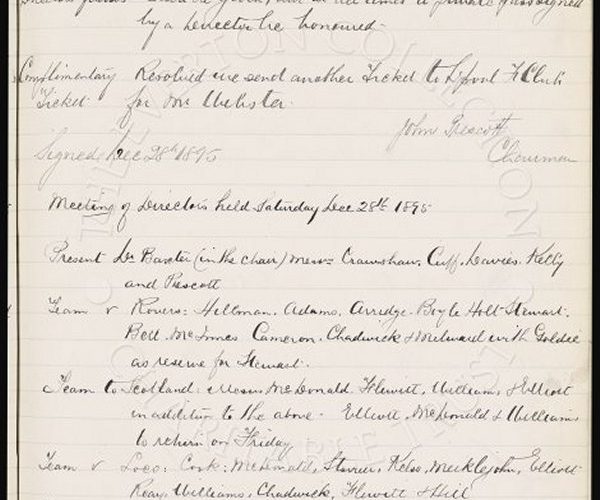 by a Director be honoured.
Complimentary Resolved we send another Ticket to L'pool F Club
Ticket. for Mr Webster.
John Prescott
Signed Dec 28th 1895 Chairman
Meeting of Directors held Saturday Dec 28th 1895
Present Dr Baxter (in the chair) Messrs Crawshaw, Cuff, Davies, Kelly
and Prescott
Team v Rovers: Hillman, Adams, Arridge, Boyle Holt Stewart.
Bell, McInnes Cameron, Chadwick & Milward with Goldie
as reserve for Stewart.
Team to Scotland: Messrs McDonald, Flewitt, Williams & Elliott
in addition to the above. Elliott, McDonald & Williams
to return on Friday
Team v Loco: Cook: McDonald, Storrier, Kelso, Meiklejohn, Elliott
Williams, Chadwick, Flewitt & Hill